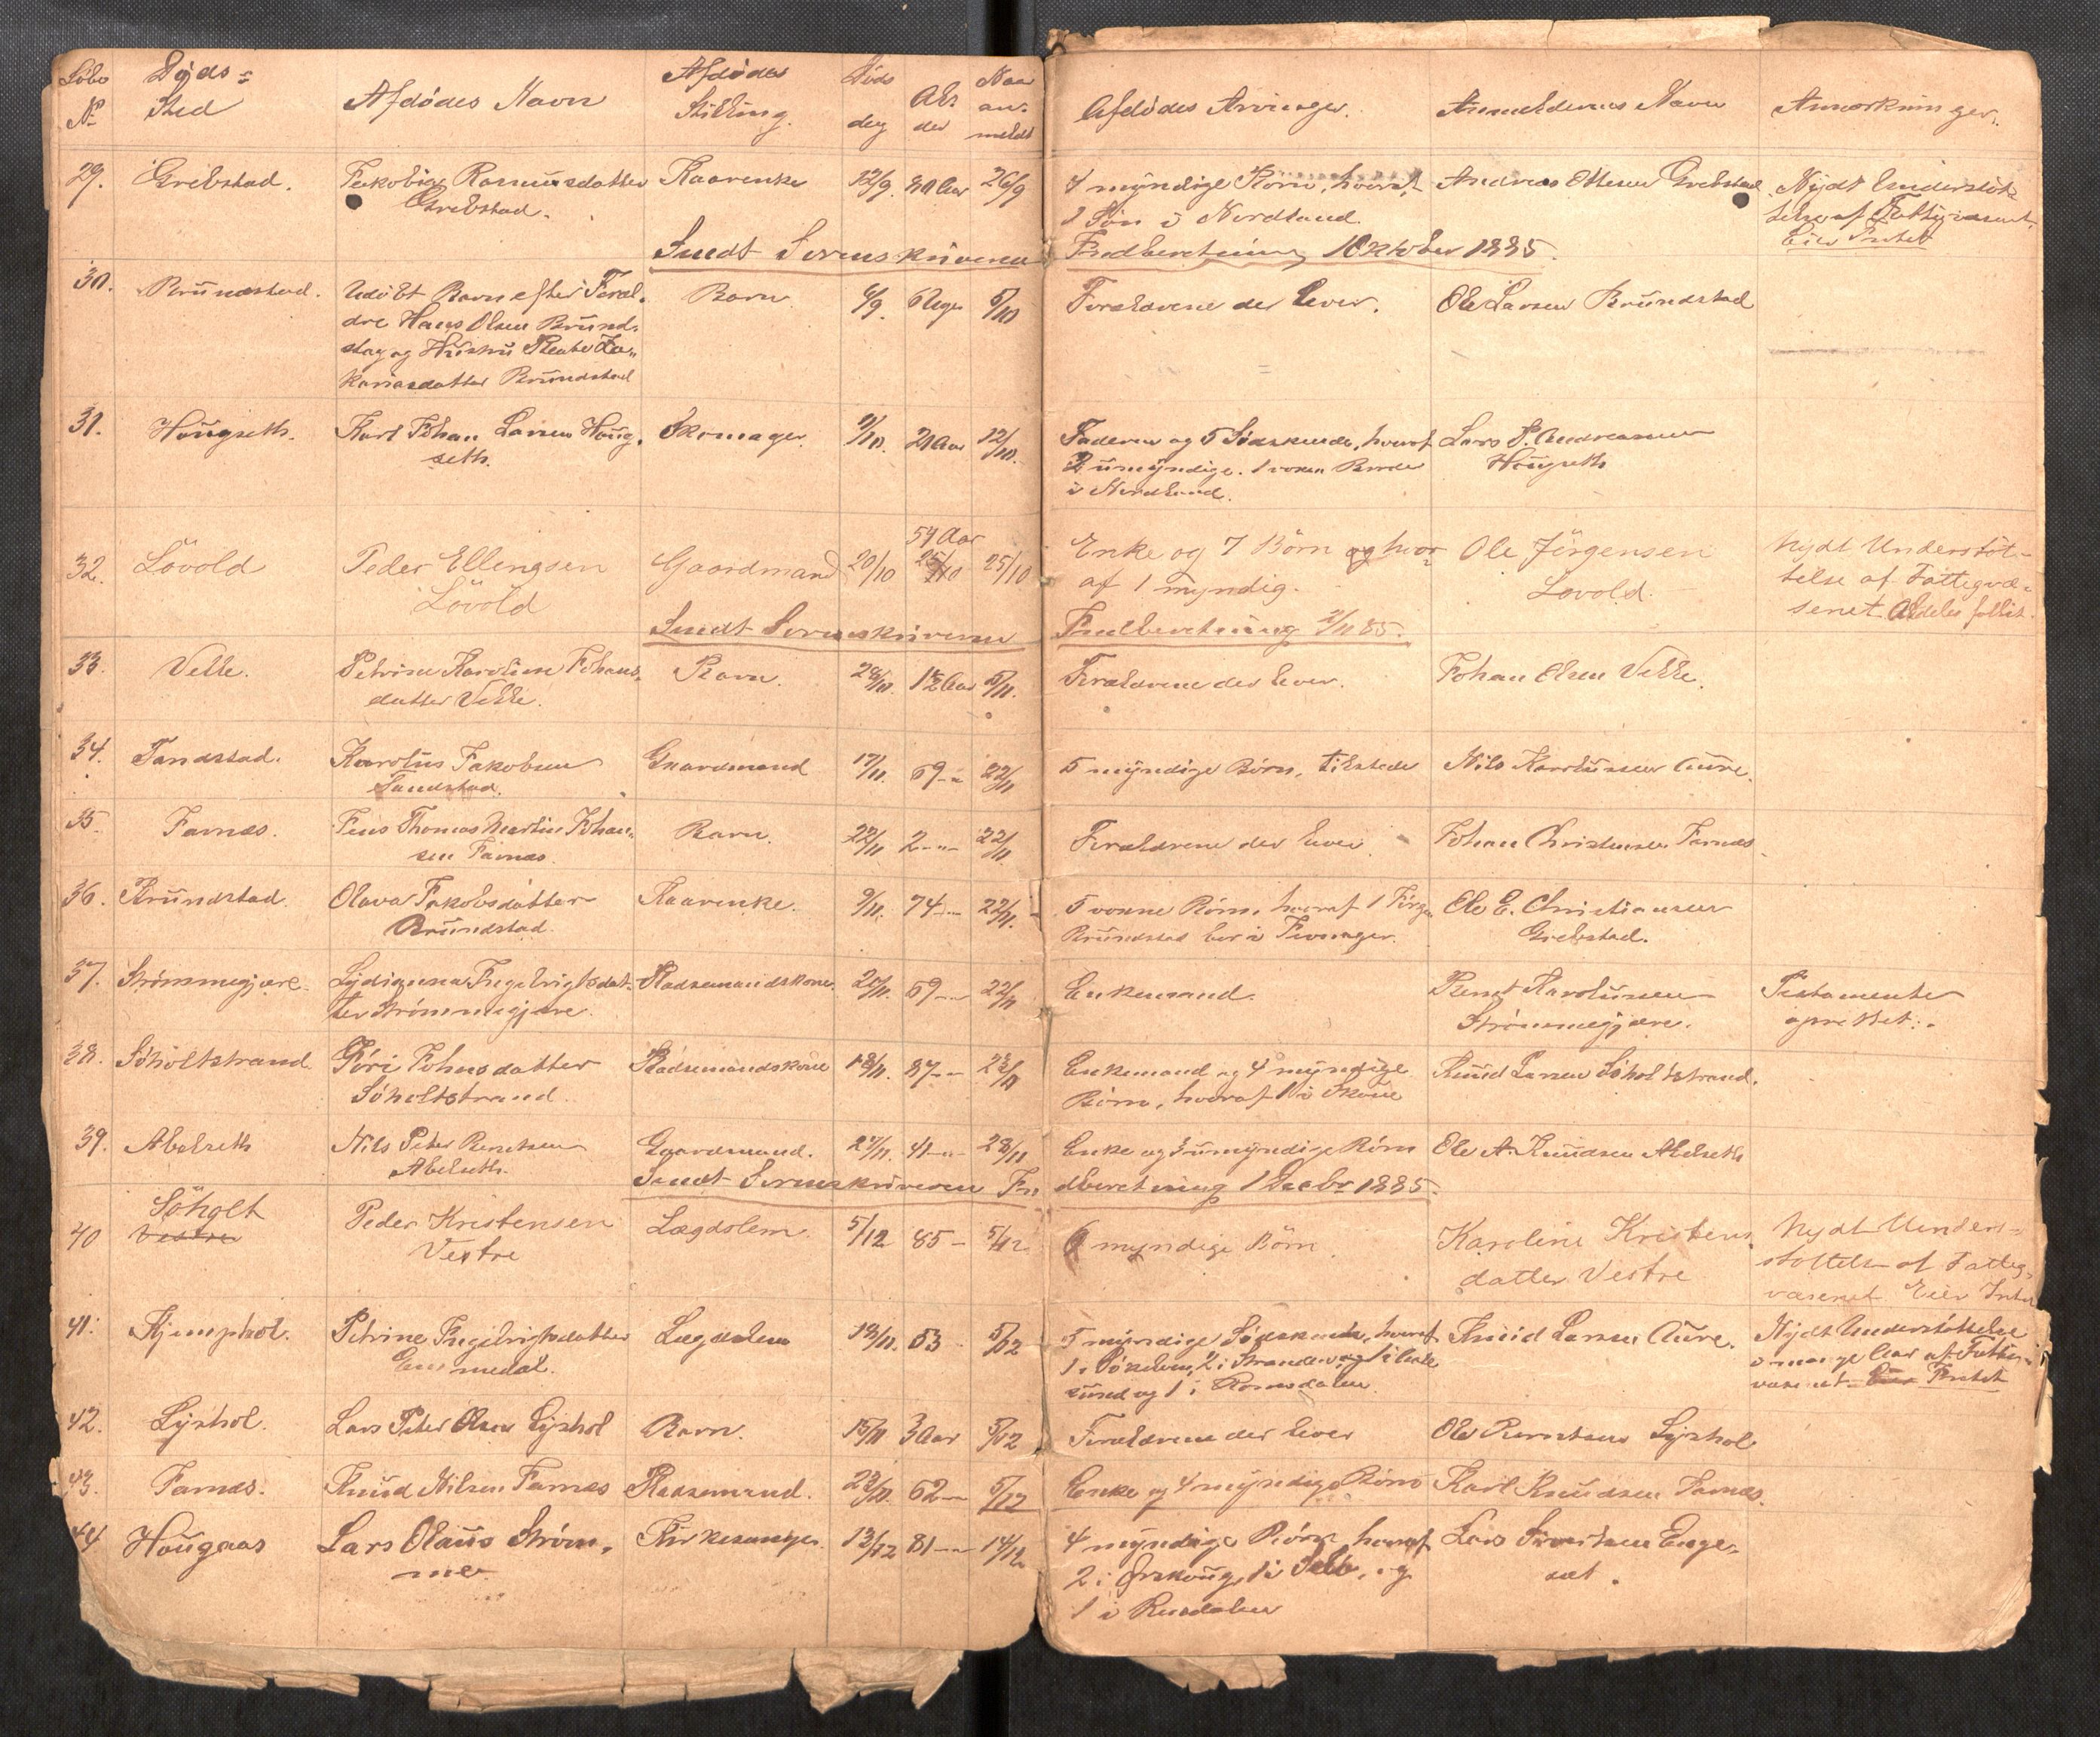 Löbe
No
Döds=
Sted
Afdödes Navn
Afdödes
Stilling.
Döds
dag
Al-
der
Naar
an-
meldt
Afdödes Arvinger.
Anmelderens Navn
Anmærkninger.
29.
Grebstad.
Jakobine Rasmusdatter
Grebstad.
Kaarenke
12/9.
80 Aar
26/9
4 myndige Börn, hvoraf
1 Sön i Nordland.
Andreas Ottesen Grebstad
Nydt Understöt-
telse af Fattigvæsenet.
Eier Intet
Sendt Sorenskriveren
Indberetning 1 Oktober 1885.
30.
Brundstad.
Udöbt Barn efter Foræl-
dre Hans Olsen Brund-
stad og Hustru Beate Za-
kariasdatter Brundstad
Barn
6/9.
5/10
Forældrene der lever.
Ole Larsen Brundstad
31.
Hougseth.
Karl Johan Larsen Houg-
seth.
Skomager.
9/10.
21 Aar
12/10.
Faderen og 5 Södskende, hvoraf
2 umyndige. 1 voxen Broder
i Nordland.
Lars P. Andreassen
Hougseth
32.
Lövold
Peder Ellengsen
Lövold
Gaardmand
20/10
54 Aar
25/10
25/10
Enke og 7 Börn og hvor-
af 1 myndig.
Ole Jörgensen
Lövold.
Nydt Understöt-
telse af Fattigvæ-
senet Aldeles fallit.
Sendt Sorenskriveren
Indberetning 2/11 85.
33.
Velle.
Petrine Karoline Johans-
datter Velle.
Barn.
28/10.
1½ Aar
5/11.
Forældrene der lever.
Johan Olsen Velle.
34.
Tandstad.
Karolus Jakobsen
Tandstad.
Gaardmand
17/11.
69 - "
22/11
5 myndige Börn, tilstede
Nils Karolussen Aure.
35.
Farnæs.
Jens Thomas Martin Johan-
sen Farnæs.
Barn.
22/11
2 - " -
22/11.
Forældrene der lever
Johan Christensen Farnæs.
36.
Brundstad.
Olava Jakobsdatter
Brundstad.
Kaarenke.
9/11.
74 - -
22/11.
5 voxne Börn, hvoraf 1 Jörgen
Brundstad bor i
Ole E. Christiansen
Grebstad.
37.
Strömmegjære.
Lydianna Ingebrigtsdat-
ter Strömmegjære.
Pladsemandskone.
20/11.
69 - -
22/11
Enkemand.
Bernt Karolussen
Strömmegjære.
Testamente
oprettet.
38.
Söholtstrand
Göri Johnsdatter
Söholtstrand.
Pladsemandskone
18/11.
87 - -
23/11
Enkemand og 4 myndige
Börn, hvoraf 1 i Skodje
Knud Larsen Söholtstrand.
39.
Abelseth
Nils Peter Berntsen
Abelseth.
Gaardmand.
27/11.
41 - "
28/11
Enke og 3 umyndige Börn
Ole A. Knudsen Abelseth
Sendt Sorenskriveren In
dberetning 1 Decbr 1885.
40
Söholt
Vestre
Peder Kristensen
Vestre
Lægdslem
5/12
85 -
5/12
6 myndige Börn.
Karoline Kristens
datter Vestre
Nydt Unders-
töttelse af Fattig-
væsenet Eier Intet
41.
Hjemphol.
Petrine Ingebrigtsdatter
Emmedal.
Lægdslem
19/11.
53
5/12
5 myndige Södskende, hvoraf
1 i Sökelven, 2 i Stranden, og 1 i Aale
sund og 1 i Romsdalen.
Knud Larsen Aure.
Nydt Understöttelse
i mange Aar af Fattig-
væsenet Eier Intet
42.
Lyshol.
Lars Peter Olsen Lyshol
Barn.
15/11
3 Aar
5/12
Forældrene der lever
Ole Berntsen Lyshol
43.
Farnæs.
Knud Nilsen Farnæs
Pladsemand.
23/11.
62 - -
5/12
Enke og 4 myndige Börn
Karl Knudsen Farnæs.
44
Hougaas
Lars Olaus Ström-
me
Kirkesanger
13/12
81 - -
14/12
4 myndige Börn, hvoraf
2 i Örskoug, 1 i , og
1 i
Lars Sivertsen Enge-
sæt.